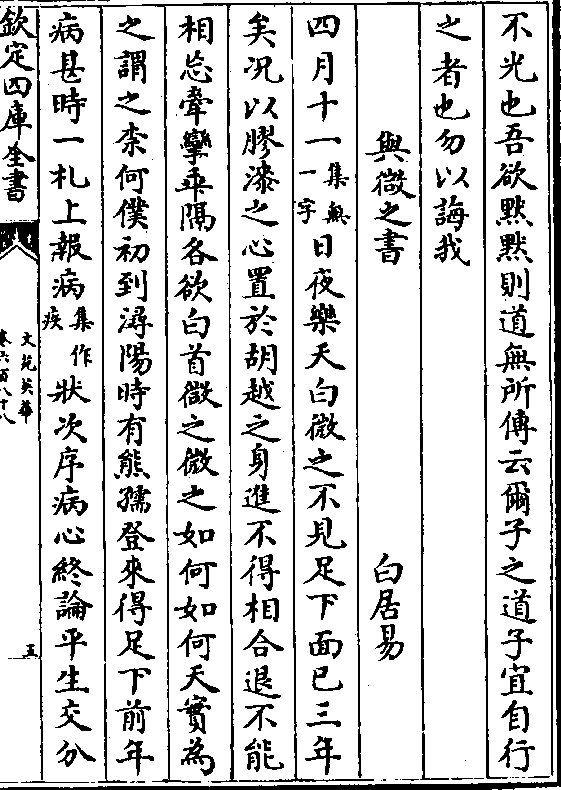 不光也吾欲黙黙則道無所傳云爾子之道子宜自行
之者也勿以誨我
與微之書　白居易
四月十一集無一字日夜樂天白微之不見足下面已三年
矣况以膠漆之心置於胡越之身進不得相合退不能
相忘牽攣乖隔各欲白首微之微之如何如何天實為
之謂之柰何僕初到潯陽時有熊孺登來得足下前年
病甚時一札上報病集作疾狀次序病心終論平生交分
欽定四庫全書
文苑英華
卷六百八十八
五